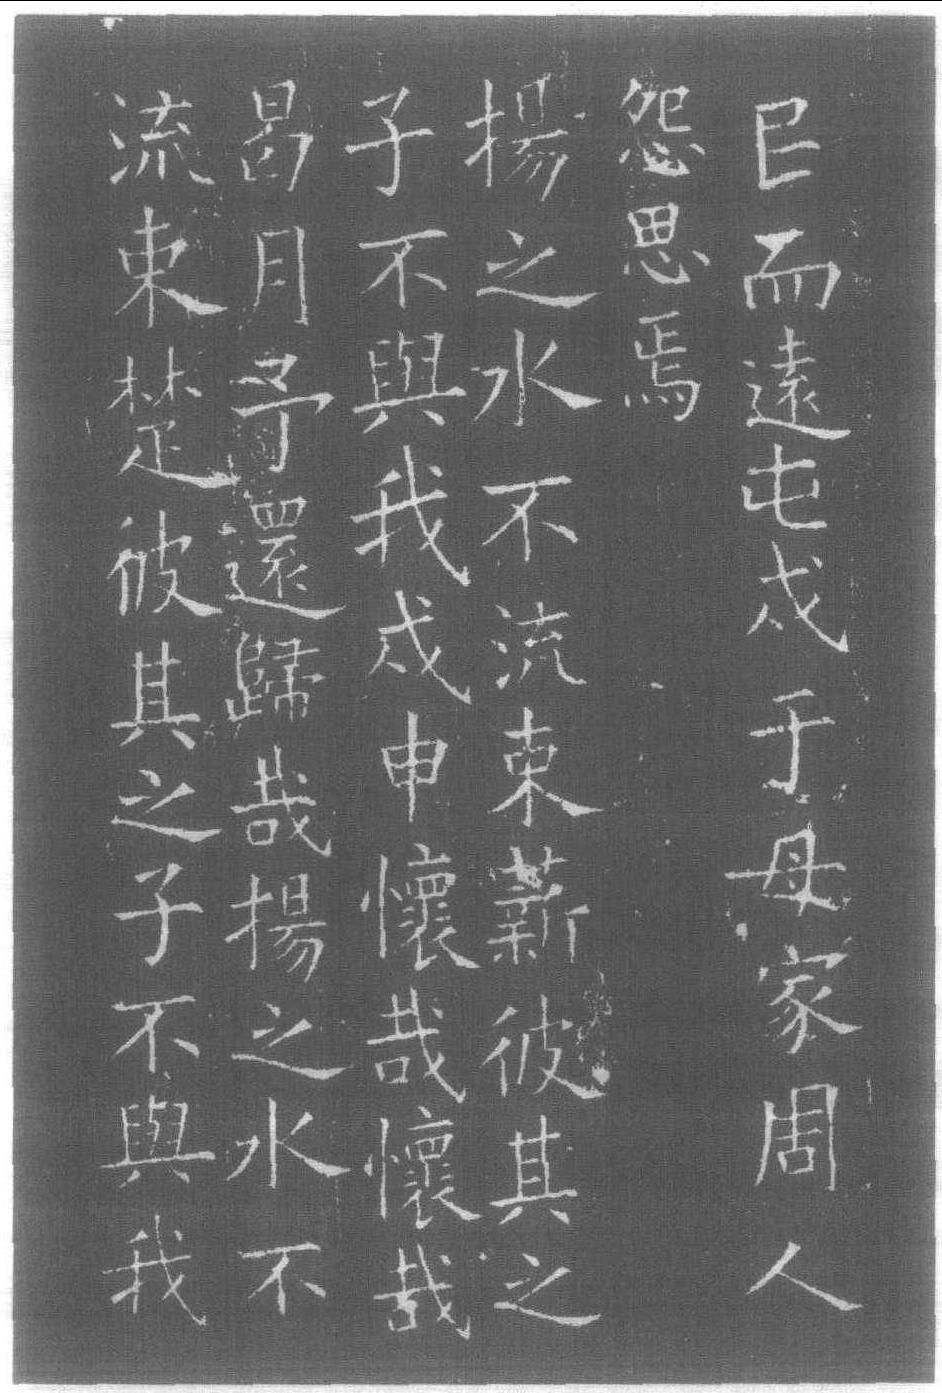 民而遠屯戍于母家周人
怨思焉
揚之水不流束薪彼其之
子不與我戍申懷哉懷哉
曷月予還歸哉揚之水不
流束楚彼其之子不與我